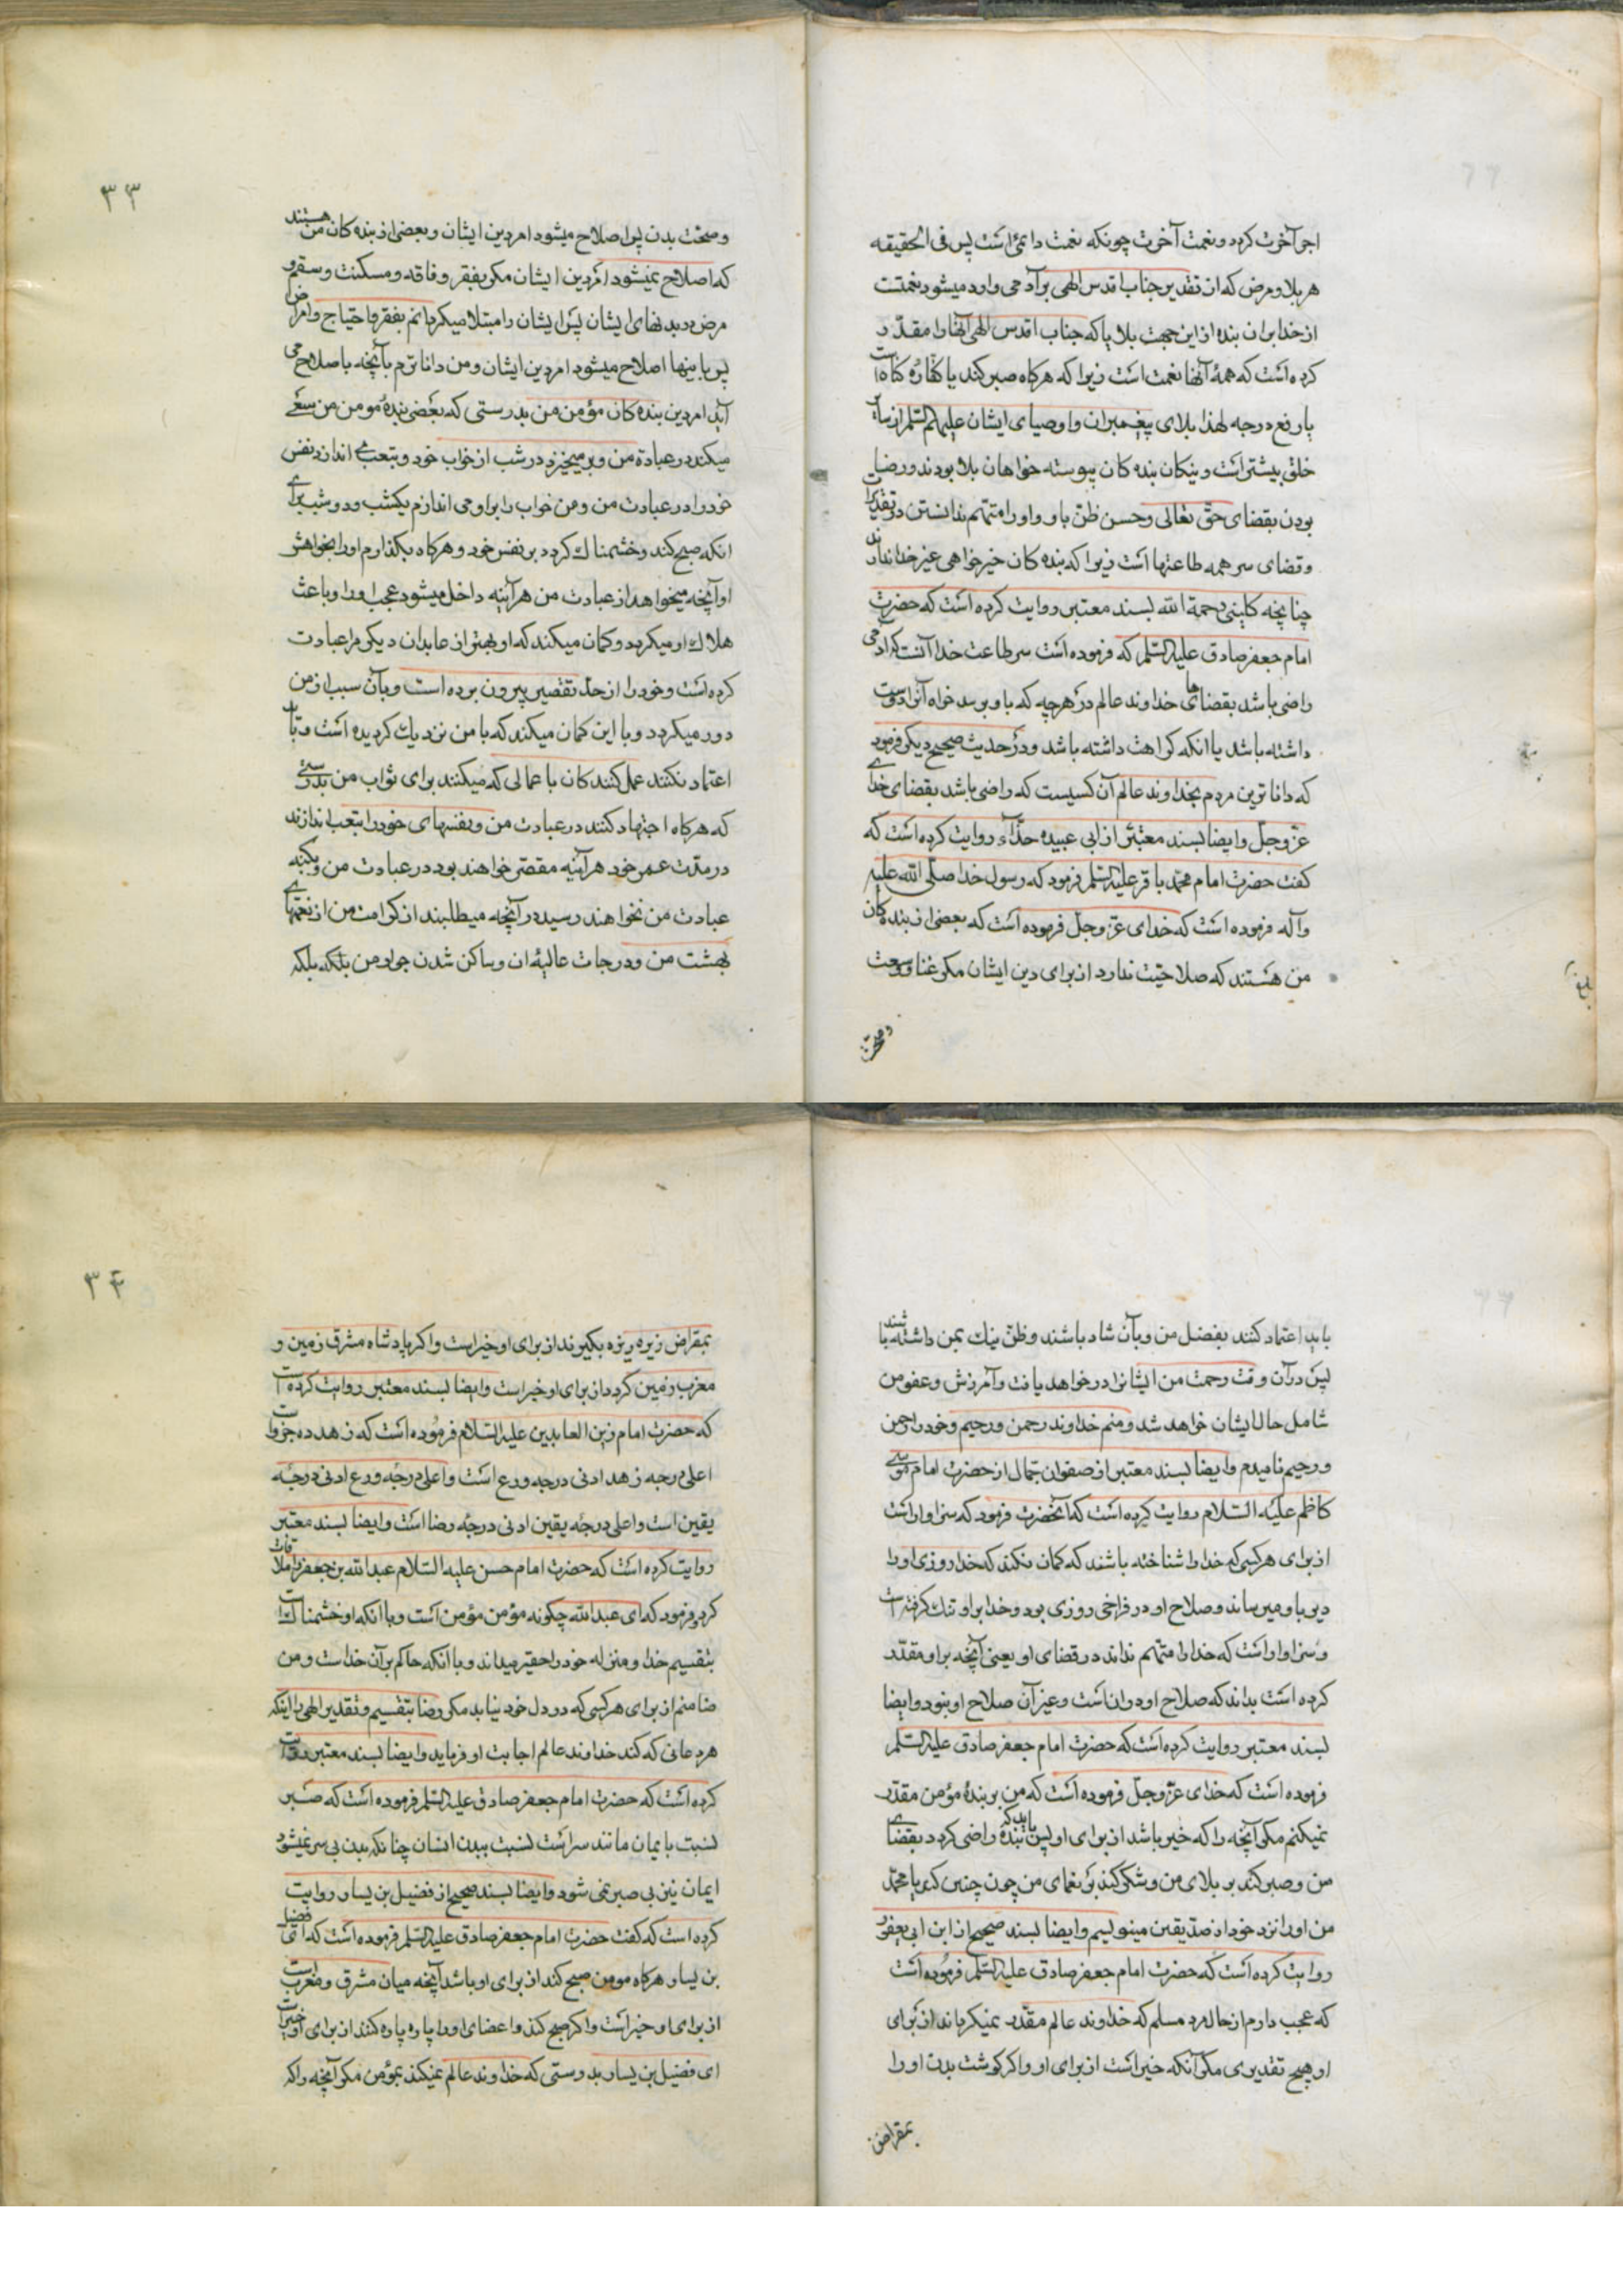 اجر آخرت کردد و نعمت آخرت چونکه نعمت دائمی است پس فی الحقیقه
هر بلا و مرض که از تقدیر جناب اقدس الهی بر آدمی وارد میشود نعمتست
از خدا بران بنده از این جهت بلاها که جناب اقدس الهی آنها را مقدّر
کرده است که همهٔ آنها نعمت است زیرا که هرکاه صبر کند یا کفّارهٔ کناه است
یا رفع درجه لهذا بلای پیغمبران و اوصیای ایشان علیهم السّلم از سایر
خلق بیشتر است و نیکان بنده کان پیوسته خواهان بلا بودند و رضا
بودن بقضای حق تعالی و حسن ظن باو و او را متّهم ندانستن در تقدیرات
و قضای سر همه طاعتها است زیرا که بنده کان خیرخواهی غیر خدا ندارند
چنانچه کلینی رحمة الله بسند معتبر روایت کرده است که حضرت
امام جعفر صادق علیه السّلم که فرموده است سر طاعت خدا آنست که آدمی
راضی باشد بقضاهای خداوند عالم در هرچه که باو برسد خواه آنرا دوست
داشته باشد یا انکه کراهت داشته باشد و در حدیث صحیح دیکر فرمود
که داناترین مردم بخداوند عالم آن کسیست که راضی باشد بقضای خدای
عزّ و جلّ و ایضا بسند معتبر از ابی عبیده حذّاء روایت کرده است که
کفت حضرت امام محمّد باقر علیه السّلم فرمود که رسول خدا صلّی الله علیه
و آله فرموده است که خدای عزّ و جلّ فرموده است که بعضی از بنده کان
من هستند که صلاحیّت ندارد از برای دین ایشان مکر غنا و وسعت
وصحّت
٣٣
و صحّت بدن پس اصلاح میشود امر دین ایشان و بعضی از بنده کان من هستند
که اصلاح نمیشود امر دین ایشان مکر بفقر و فاقه و مسکنت و سقم و
مرض در بدنهای ایشان پس ایشان را مبتلا میکردانم بفقر و احتیاج و امراض
پس باینها اصلاح میشود امر دین ایشان و من داناترم بآنچه باصلاح می
آید امر دین بنده کان مؤمن من بدرستی که بعضی بندهٔ مومن من سعی
میکند در عبادة من و بر میخیزد در شب از خواب خود و بتعب می اندازد نفس
خود را در عبادت من و من خواب را بر او می اندازم یکشب و دو شب برای
انکه صبح کند و خشمناک کردد بر نفس خود و هرکاه بکذارم او را بخواهش
او آنچه میخواهد از عبادت من هر آینه داخل میشود عجب او را و باعث
هلاک او میکردد و کمان میکند که او بهتر از عابدان دیکر مرا عبادت
کرده است و خود را از حدّ تقصیر بیرون برده است و بآن سبب از من
دور میکردد و با این کمان میکند که با من نزدیک کردیده است و تا
اعتماد نکنند عمل کنندکان با عمالی که میکنند برای ثواب من بدرستی
که هرکاه اجتهاد کنند در عبادت من و نفسهای خود را بتعب اندازند
در مدّت عمر خود هر آینه مقصّر خواهند بود در عبادت من و بکنه
عبادت من نخواهند رسید در آنچه میطلبند از کرامت من از نعمتهای
بهشت من و درجات عالیهٔ ان و ساکن شدن جوار من بلکه بلکه
باید اعتماد کنند بفضل من و بآن شاد باشند و ظنّ نیک بمن داشته باشند
پس در آن وقت رحمت من ایشانرا در خواهد یافت و آمرزش و عفو من
شامل حال ایشان خواهد شد و منم خداوند رحمن و رحیم و خود را رحمن
و رحیم نامیدم و ایضا بسند معتبر از صفوان جمّال از حضرت امام موسی
کاظم علیه السّلام روایت کرده است که آنحضرت فرمود که سزاوار است
از برای هر کسی که خدا را شناخته باشد که کمان نکند که خدا روزی او را
دیر باو میرساند و صلاح او در فراخی روزی بود و خدا بر او تنک کرفته است
و سزاوار است که خدا را متّهم نداند در قضای او یعنی آنچه بر او مقدّر
کرده است بداند که صلاح او در انست و غیر آن صلاح او نبود و ایضا
بسند معتبر روایت کرده است که حضرت امام جعفر صادق علیه السّلم
فرموده است که خدای عزّ و جلّ فرموده است که من بر بندهٔ مؤمن مقدّر
نمیکنم مکر آنچه را که خیر باشد از برای او پس باید که بنده راضی کردد بقضای
من و صبر کند بر بلای من و شکر کند بر نعمای من چون چنین کند یا محمّد
من او را نزد خود از صدّیقین مینویسم و ایضا بسند صحیح از ابن ابی یعفور
روایت کرده است که حضرت امام جعفر صادق علیه السّلم فرموده است
که عجب دارم از حال مرد مسلم که خداوند عالم مقدّر نمیکرداند از برای
او هیچ تقدیری مکر آنکه خیر است از برای او و اکر کوشت بدن او را
بمقراض
٣٤
بمقراض ریزه ریزه بکیرند از برای او خیر است و اکر پادشاه مشرق زمین و
مغرب زمین کردد از برای او خیر است و ایضا بسند معتبر روایت کرده است
که حضرت امام زین العابدین علیه السّلام فرموده است که زهد ده جزو است
اعلی درجه زهد ادنی درجه ورع است و اعلی درجه ورع ادنی درجه
یقین است و اعلی درجه یقین ادنی درجه رضا است و ایضا بسند معتبر
روایت کرده است که حضرت امام حسن علیه السّلام عبد الله بن جعفر را ملاقات
کرد و فرمود که ای عبد الله چکونه مؤمن مؤمن است و با انکه او خشمناک است
بتقسیم خدا و منزله خود را حقیر میداند و با انکه حاکم بر آن خداست و من
ضامنم از برای هر کسی که در دل خود نیابد مکر رضا بتقسیم و تقدیر الهی را اینکه
هر دعائی که کند خداوند عالم اجابت او فرماید و ایضا بسند معتبر روایت
کرده است که حضرت امام جعفر صادق علیه السّلم فرموده است که صبر
نسبت بایمان مانند سر است نسبت ببدن انسان چنانکه بدن بی سر نمیشود
ایمان نیز بی صبر نمی شود و ایضا بسند صحیح از فضیل بن یسار روایت
کرده است که کفت حضرت امام جعفر صادق علیه السّلم فرموده است که ای فضیل
بن یسار هرکاه مومن صبح کند از برای او باشد آنچه میان مشرق و مغرب است
از برای او خیر است و اکر صبح کند و اعضای او را پاره پاره کنند از برای او خیر است
ای فضیل بن یسار بدرستی که خداوند عالم نمیکند بمؤمن مکر آنچه را که